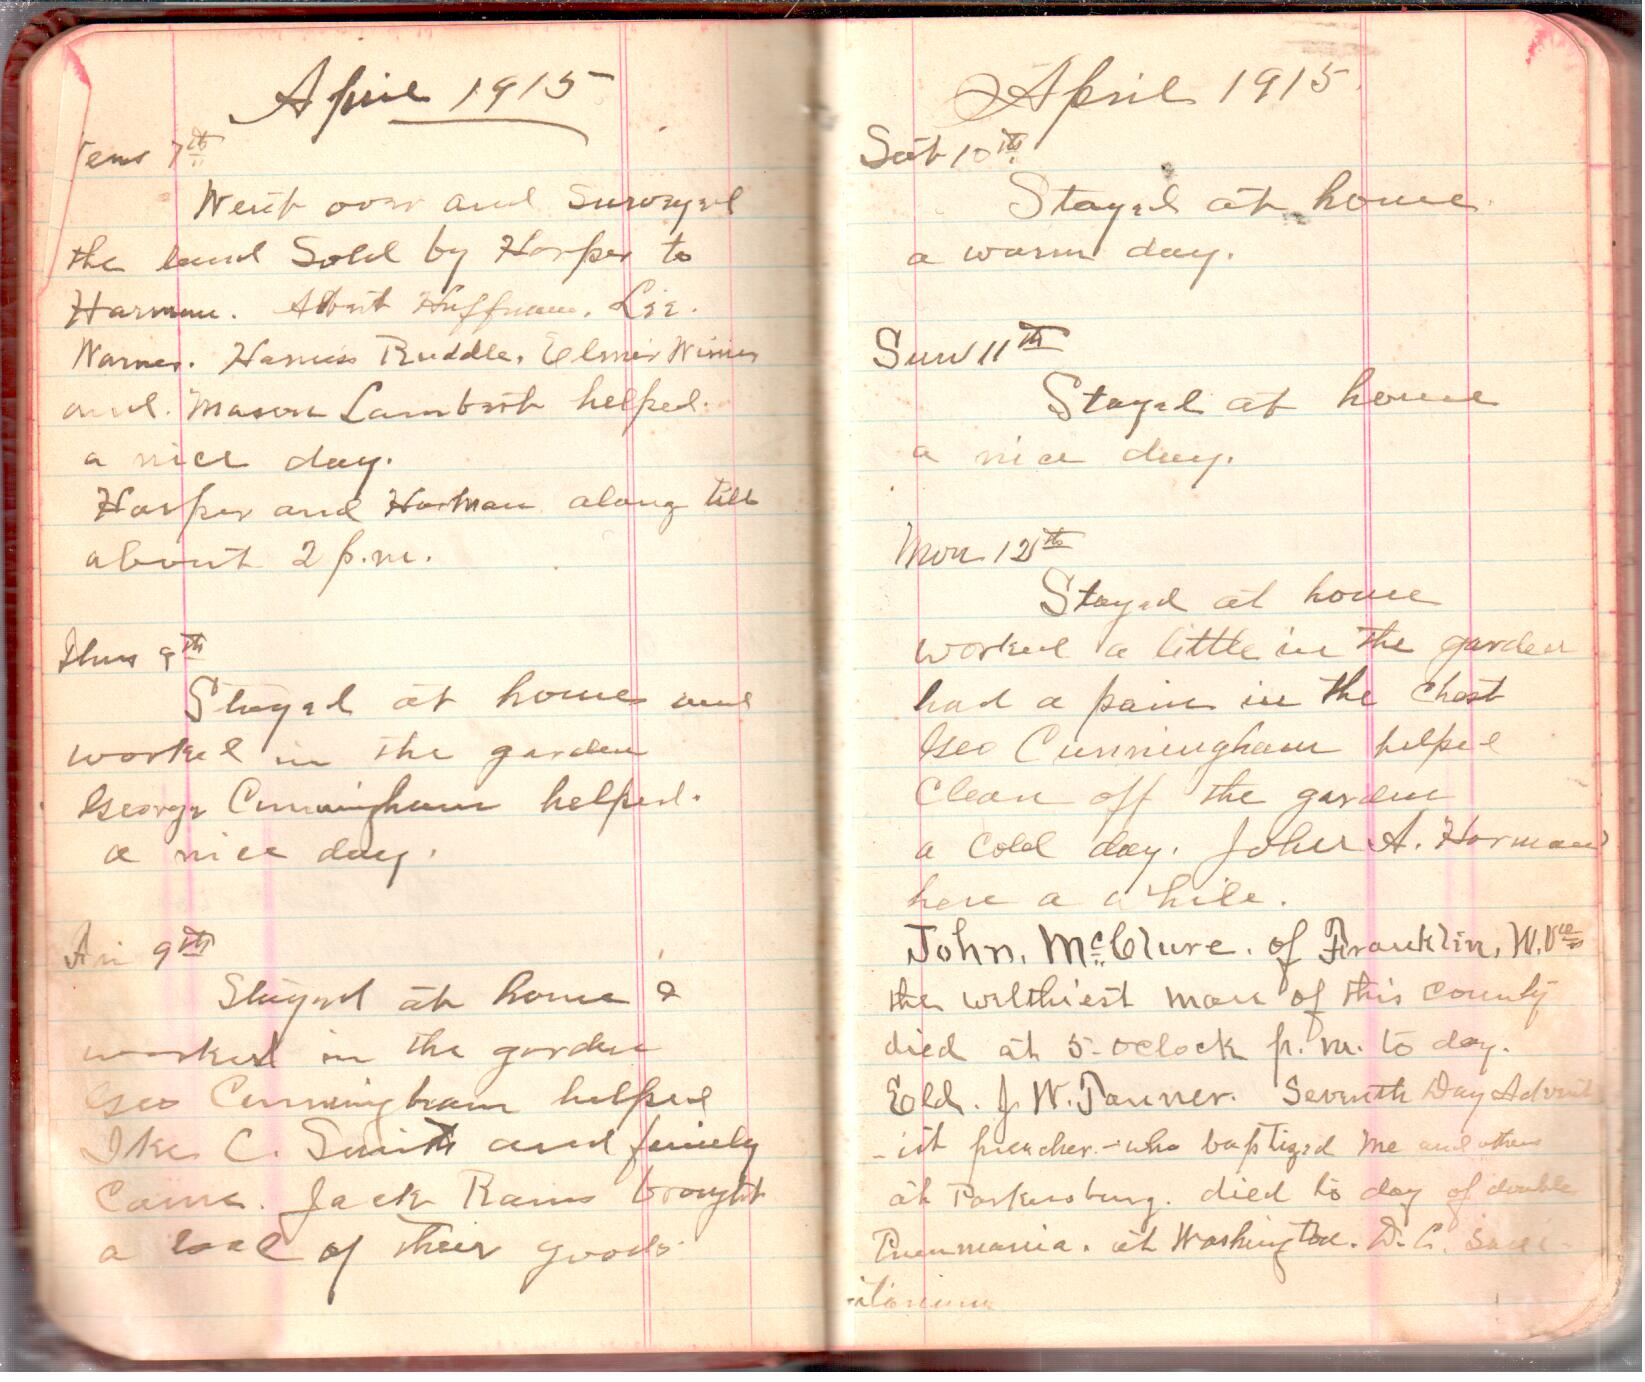 April 1915
7th
Went over and Surveyed
the land Sold by Harper to
Harman. Albert Huffman. Lie.
Warner. Harness Ruddle. Elmer Wimer
and. Mason Lambert helped.
a nice day.
Harper and Harman along till
about 2 p.m.
Thus 8th
Stayed at home and
worked in the garden
George Cunningham helped.
a nice day.
Fri 9th
Stayed at home &
worked in the garden
Geo Cunningham helped
Ike C. Smith and fimily
Came. Jack Rains brought
a load of their goods
April 1915.
Sat 10th
Stayed at home.
a warm day.
Sun 11th
Stayed at home
a nice day.
Mon 12th
Stayed at home
worked a little in the garden
had a pain in the Chest
Geo Cunningham helped
Clean off the garden
a Cold day. John A. Harman
here a while.
John. McClure. of Franklin, W.Va
the welthiest man of this county
died at 5-oclock p.m. to day.
Eld. J. W. Tanner. Seventh Day Advent
-ist preacher.-who baptized me and others
at Parkersburg. died to day of double
Pneumania. at Washington. D.C. San
-itarium